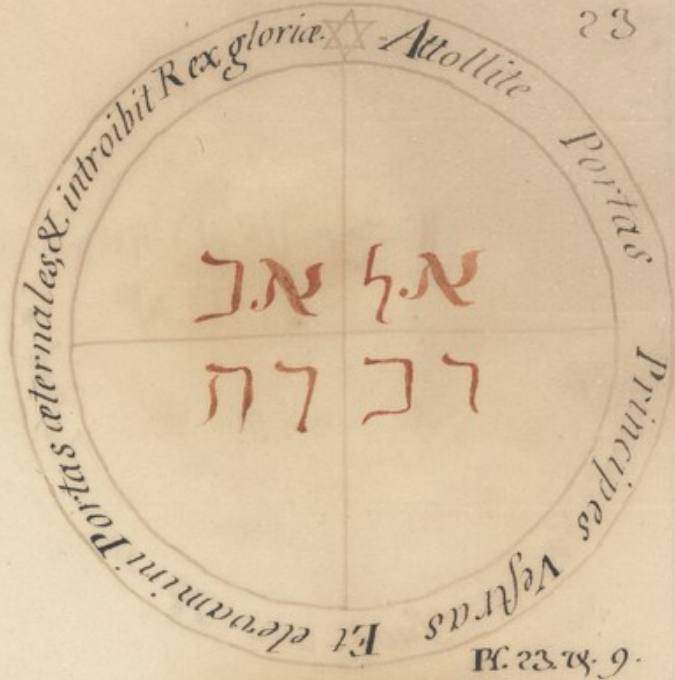 23
Attollite Portas Principes Veſtras Et elevamini Portas æternales, & introibit Rex gloriæ.
א.ל א.כ
רכ רח
Pſ. 23. ℣. 9.